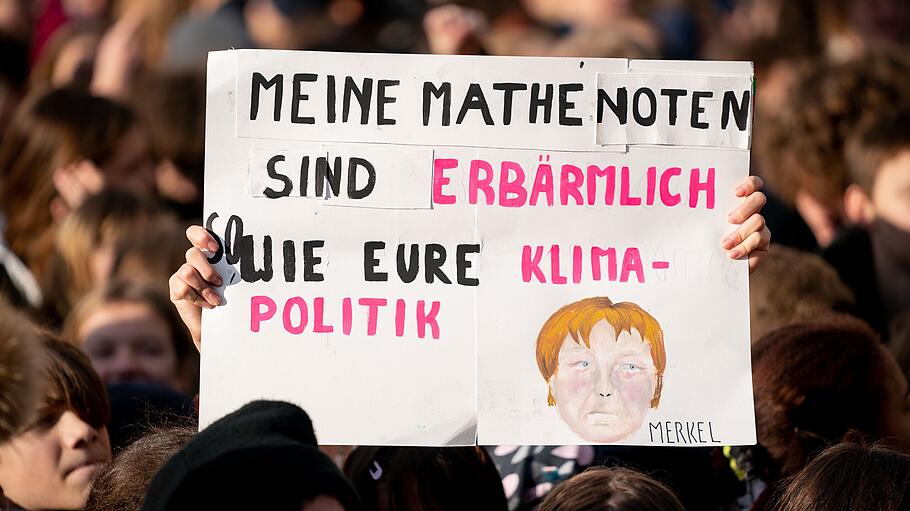 MEINE MATHE NOTEN
SIND ERBÄRMLICH
SO WIE EURE KLIMA-
POLITIK
MERKEL